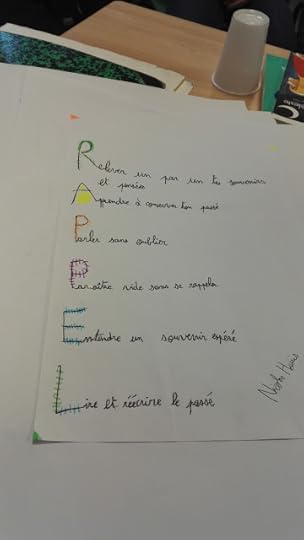 Relever un par un tes souvenirs
et pensées
Apprendre à conserver ton passé
Parler sans oublier
Paraître vide sans se rappeler
Entendre un souvenir espéré
Lire et réécrire le passé